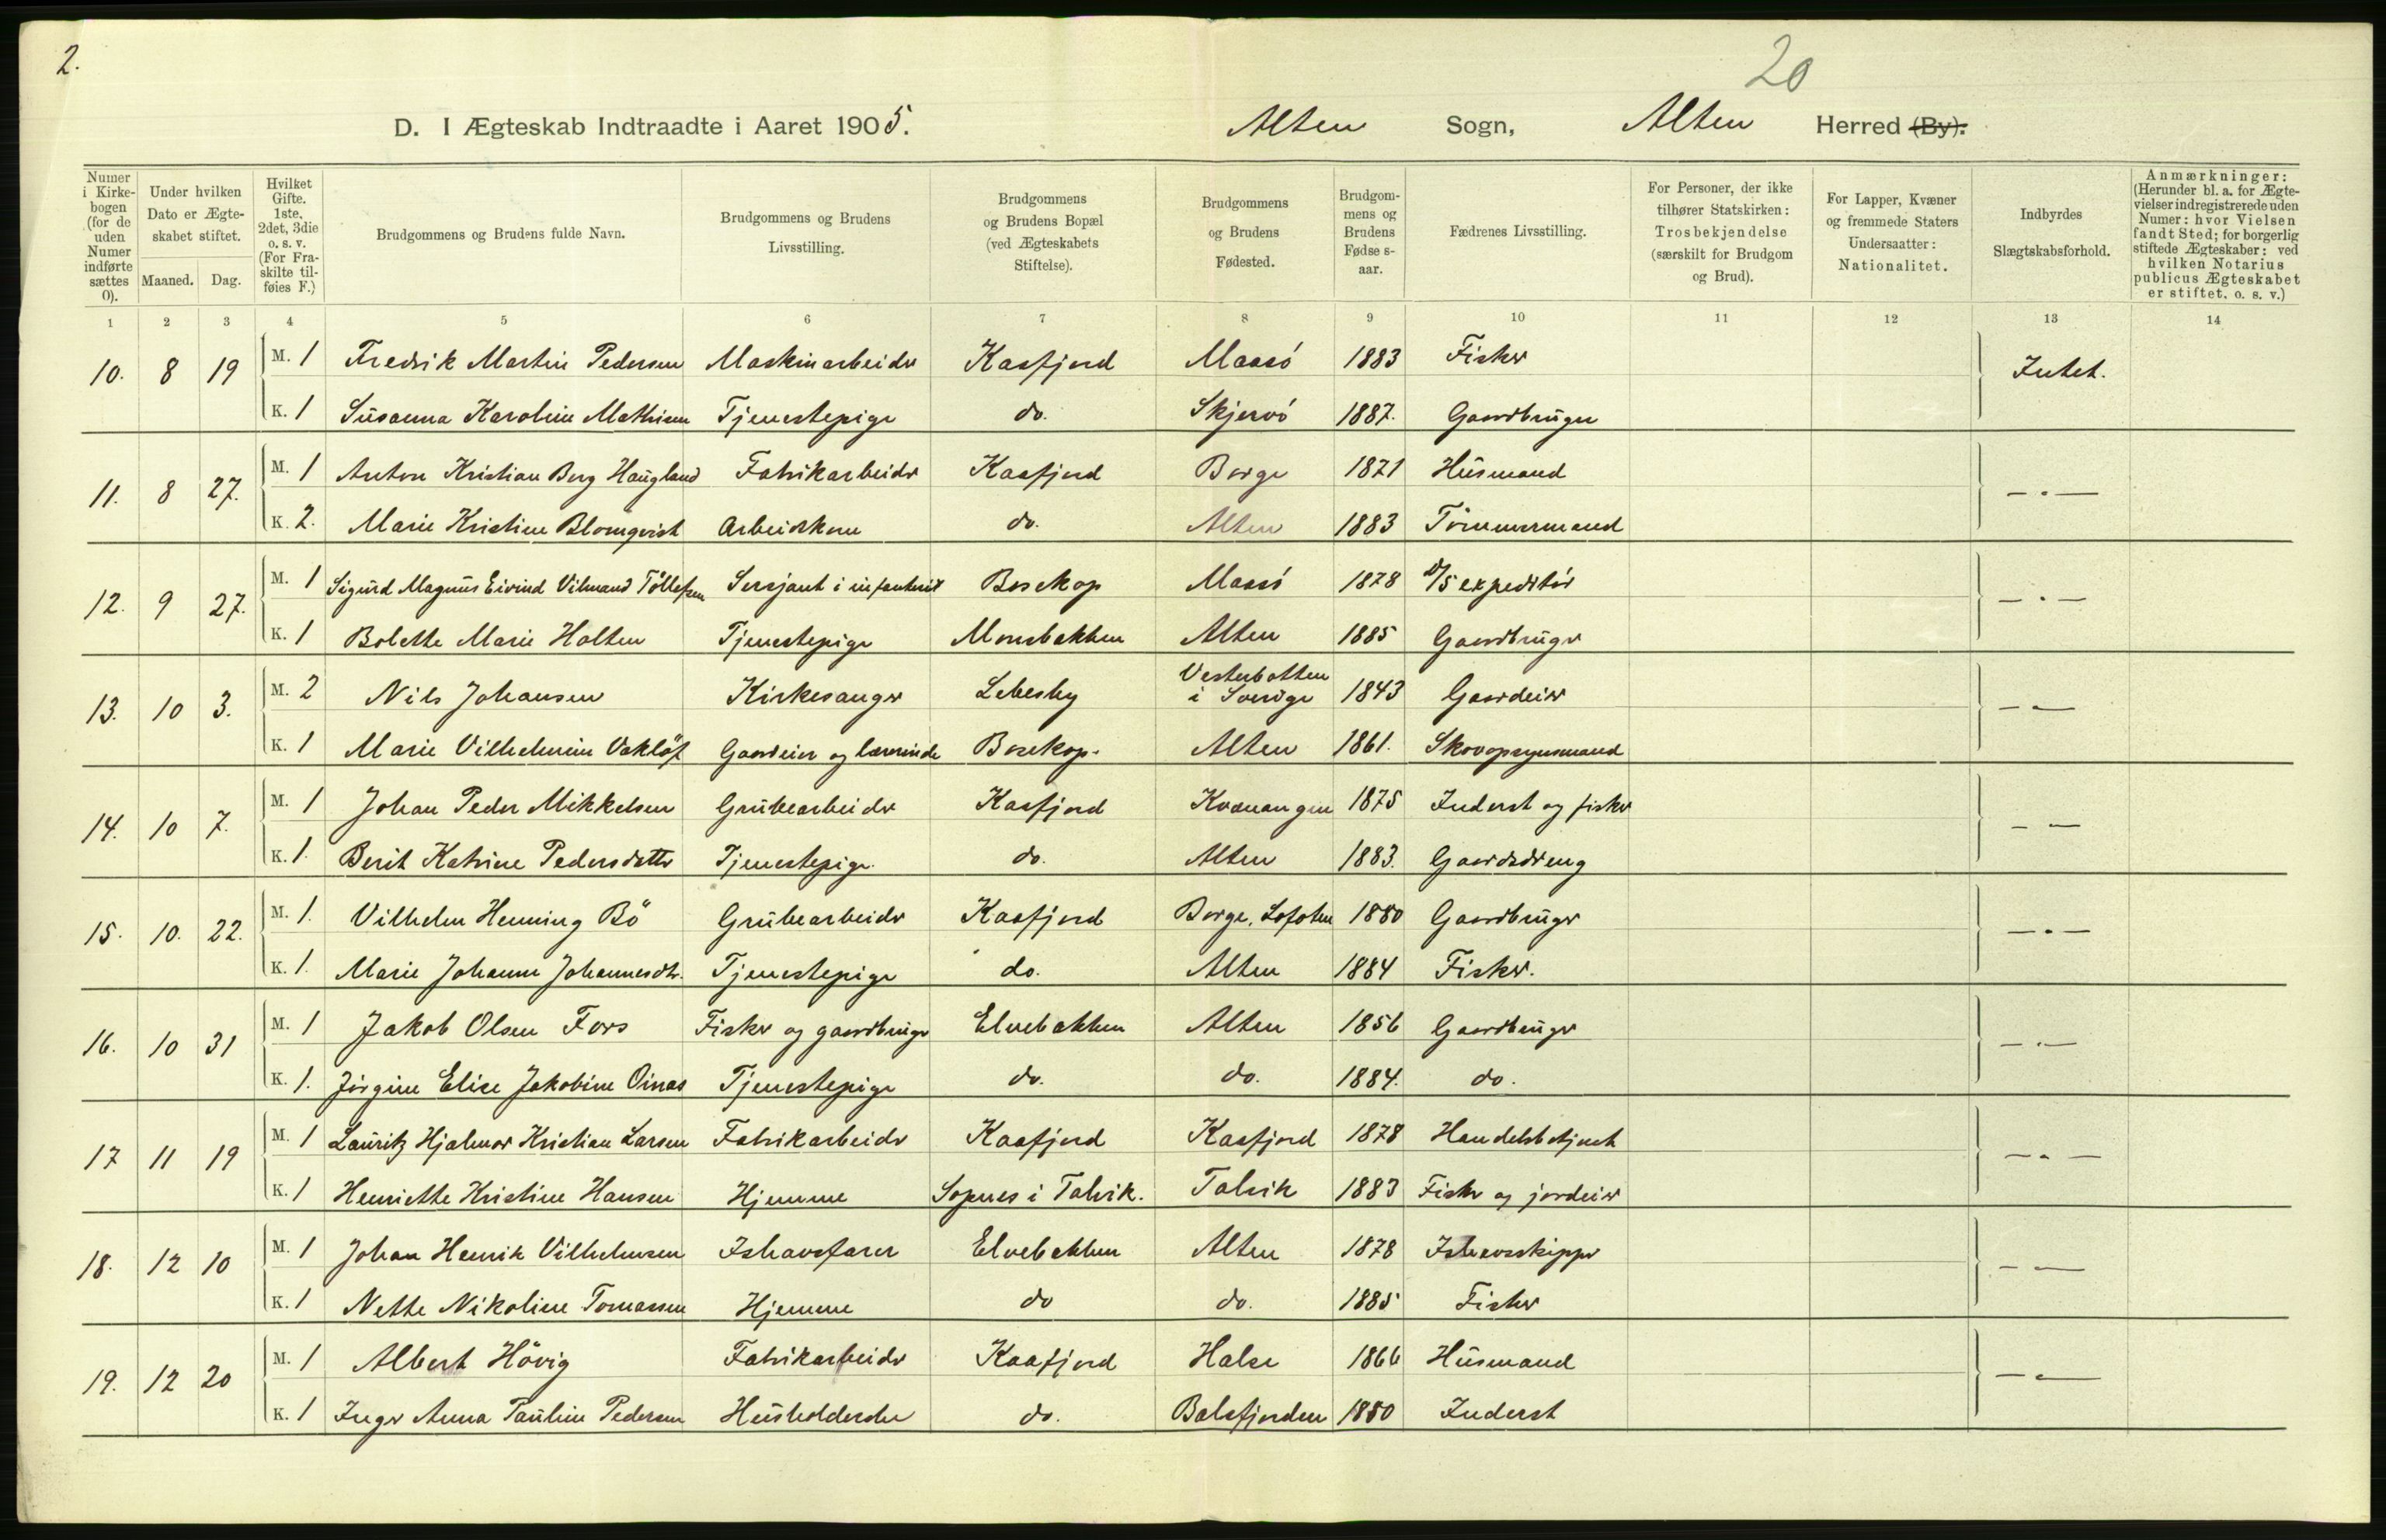 2.
20
D. I Ægteskab Indtraadte i Aaret 1905. Alten Sogn, Alten Herred (By).
Numer i Kirkebogen (for de uden Numer indførte sættes 0).
Under hvilken Dato er Ægteskabet stiftet.
Maaned. Dag.
Hvilket Gifte. 1ste, 2det, 3die o. s. v. (For Fraskilte tilføies F.)
Brudgommens og Brudens fulde Navn.
Brudgommens og Brudens Livsstilling.
Brudgommens og Brudens Bopæl (ved Ægteskabets Stiftelse).
Brudgommens og Brudens Fødested.
Brudgommens og Brudens Fødselsaar.
Fædrenes Livsstilling.
For Personer, der ikke tilhører Statskirken: Trosbekjendelse (særskilt for Brudgom og Brud).
For Lapper, Kvæner og fremmede Staters Undersaatter: Nationalitet.
Indbyrdes Slægtskabsforhold.
Anmærkninger: (Herunder bl. a. for Ægtevielser indregistrerede uden Numer: hvor Vielsen fandt Sted; for borgerlig stiftede Ægteskaber: ved hvilken Notarius publicus Ægteskabet er stiftet. o. s. v.)
1 2 3 4 5 6 7 8 9 10 11 12 13 14
10. 8 19 M. 1 Fredrik Martin Pedersen Maskinarbeider Kaafjord Maasö 1883 Fisker Intet.
K. 1 Susanna Karoline Mathisen Tjenestepige do. Skjervö 1887. Gaardbruger
11. 8 27. M. 1 Anton Kristian Berg Haugland Fabrikarbeider Kaafjord Borge 1871 Husmand — " —
K. 2. Marie Kristine Blomqvist Arbeidskone do. Alten 1883 Tömmermand
12. 9 27. M. 1 Sigurd Magnus Eivind Vilmand Töllefsen Sersjant i infanteriet Bosekop Maasö 1878 D/S expeditör — " —
K. 1 Bolette Marie Holten Tjenestepige Monsbakken Alten 1885 Gaardbruger
13. 10 3. M. 2 Nils Johansen Kirkesanger Lebesby Vesterbotten i Sverige 1843 Gaardeier — " —
K. 1 Marie Vilhelmine Vaklöf Gaardeier og lærerinde Bosekop. Alten 1861. Skovopsynsmand
14. 10 7. M. 1 Johan Peder Mikkelsen Grubearbeider Kaafjord Kvænangen 1875 Inderst og fisker — —
K. 1. Berit Katrine Pedersdatter Tjenestepige. do. Alten 1883. Gaardsdreng
15. 10. 22. M. 1. Vilhelm Henning Bö Grubearbeider Kaafjord Borge, Lofoten 1880 Gaardbruger — " —
K. 1. Marie Johanne Johannesdtr. Tjenestepige do. Alten 1884 Fisker.
16. 10 31 M. 1 Jakob Olsen Fors Fisker og gaardbruger Elvebakken Alten 1856 Gaardbruger — " —
K. 1. Jörgine Elise Jakobine Oinas Tjenestepige do. do. 1884. do.
17 11 19 M. 1 Lauritz Hjalmar Kristian Larsen Fabrikarbeider Kaafjord Kaafjord 1878 Handelsbetjent — " —
K. 1 Henriette Kristine Hansen Hjemme Sopnes i Talvik. Talvik 1883 Fisker og jordeier
18. 12 10 M. 1 Johan Henrik Vilhelmsen Ishavsfarer Elvebakken Alten 1878 Ishavsskipper — " —
K. 1 Nette Nikoline Tomassen Hjemme do do. 1885 Fisker
19. 12 20 M. 1 Albert Hövig Fabrikarbeider Kaafjord Halse 1866 Husmand — " —
K. 1 Inger Anna Pauline Pedersen Husholderske do. Balsfjorden 1880 Inderst